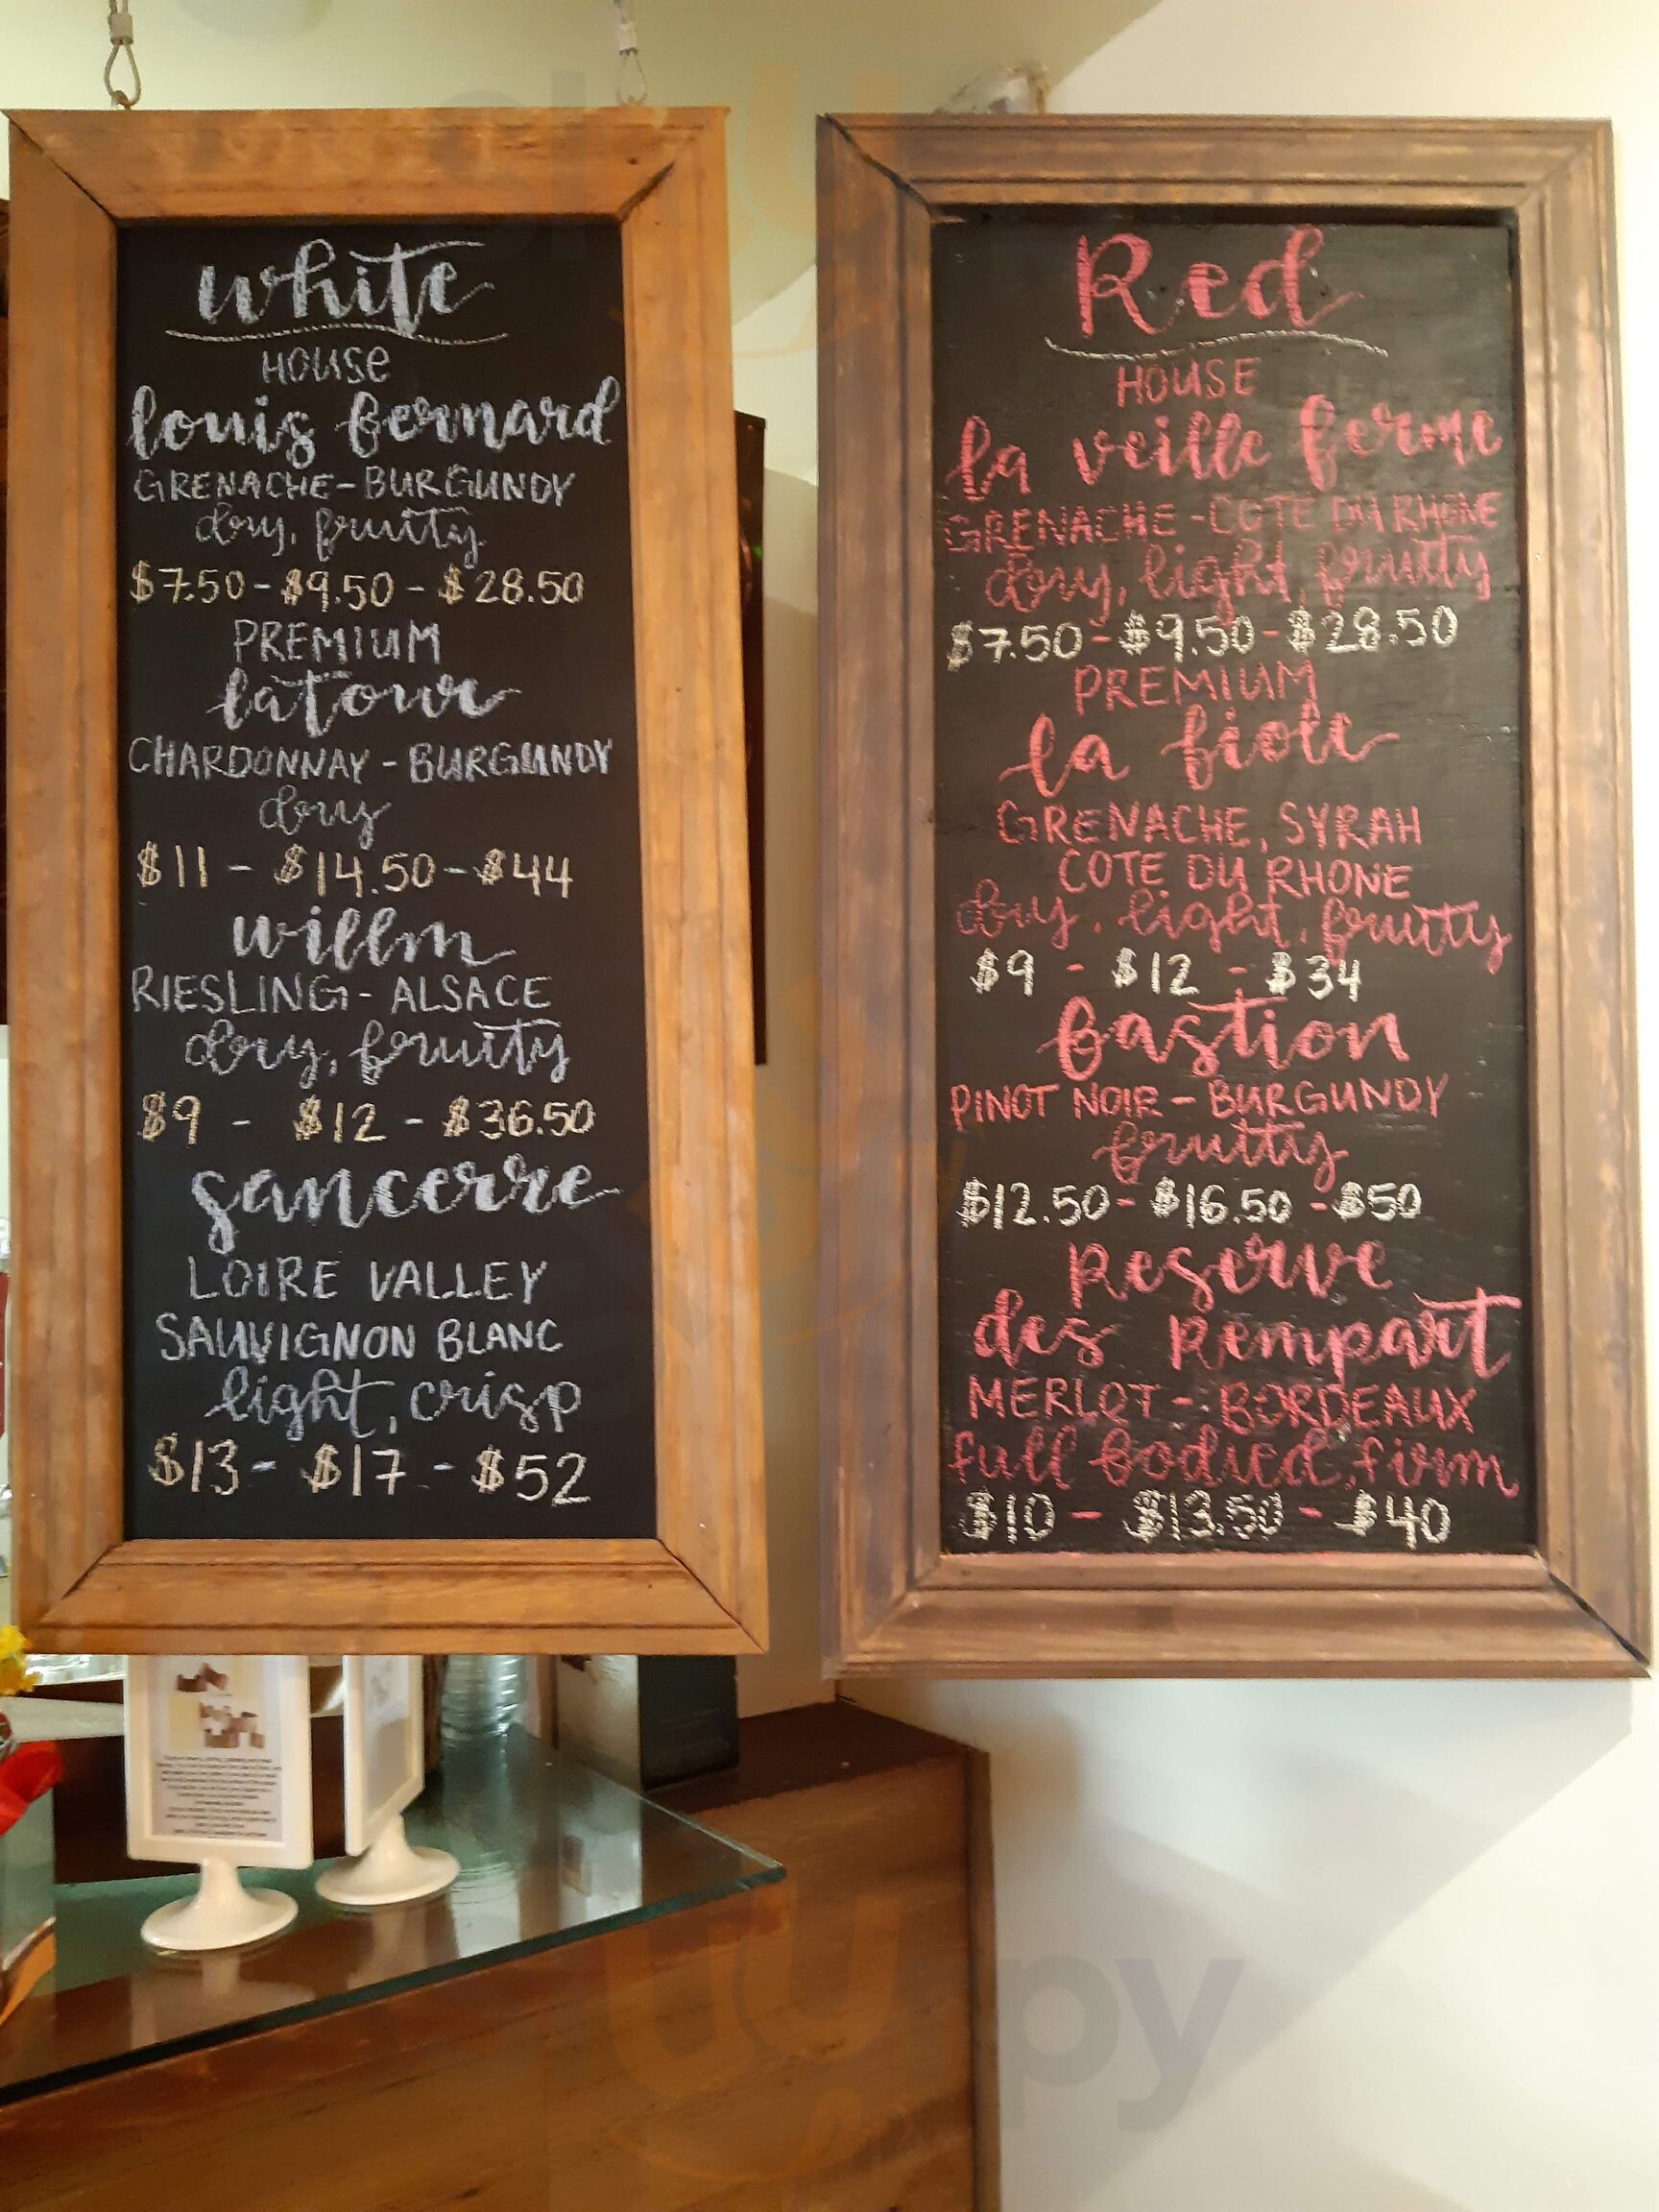 White
HOUSE
louis bernard
GRENACHE-BURGUNDY
dry, fruity
$7.50 - $9.50 - $28.50
PREMIUM
latour
CHARDONNAY - BURGUNDY
dry
$11 - $14.50 - $44
willm
RIESLING - ALSACE
dry, fruity
$9 - $12 - $36.50
sancerre
LOIRE VALLEY
SAUVIGNON BLANC
light, crisp
$13 - $17 - $52
Red
HOUSE
la veille ferme
GRENACHE - COTE DU RHONE
dry, light, fruity
$7.50 - $9.50 - $28.50
PREMIUM
la fiole
GRENACHE, SYRAH
COTE DU RHONE
dry, light, fruity
$9 - $12 - $34
bastion
PINOT NOIR - BURGUNDY
fruitty
$12.50 - $16.50 - $50
Reserve
des Rempart
MERLOT - BORDEAUX
full bodied, firm
$10 - $13.50 - $40